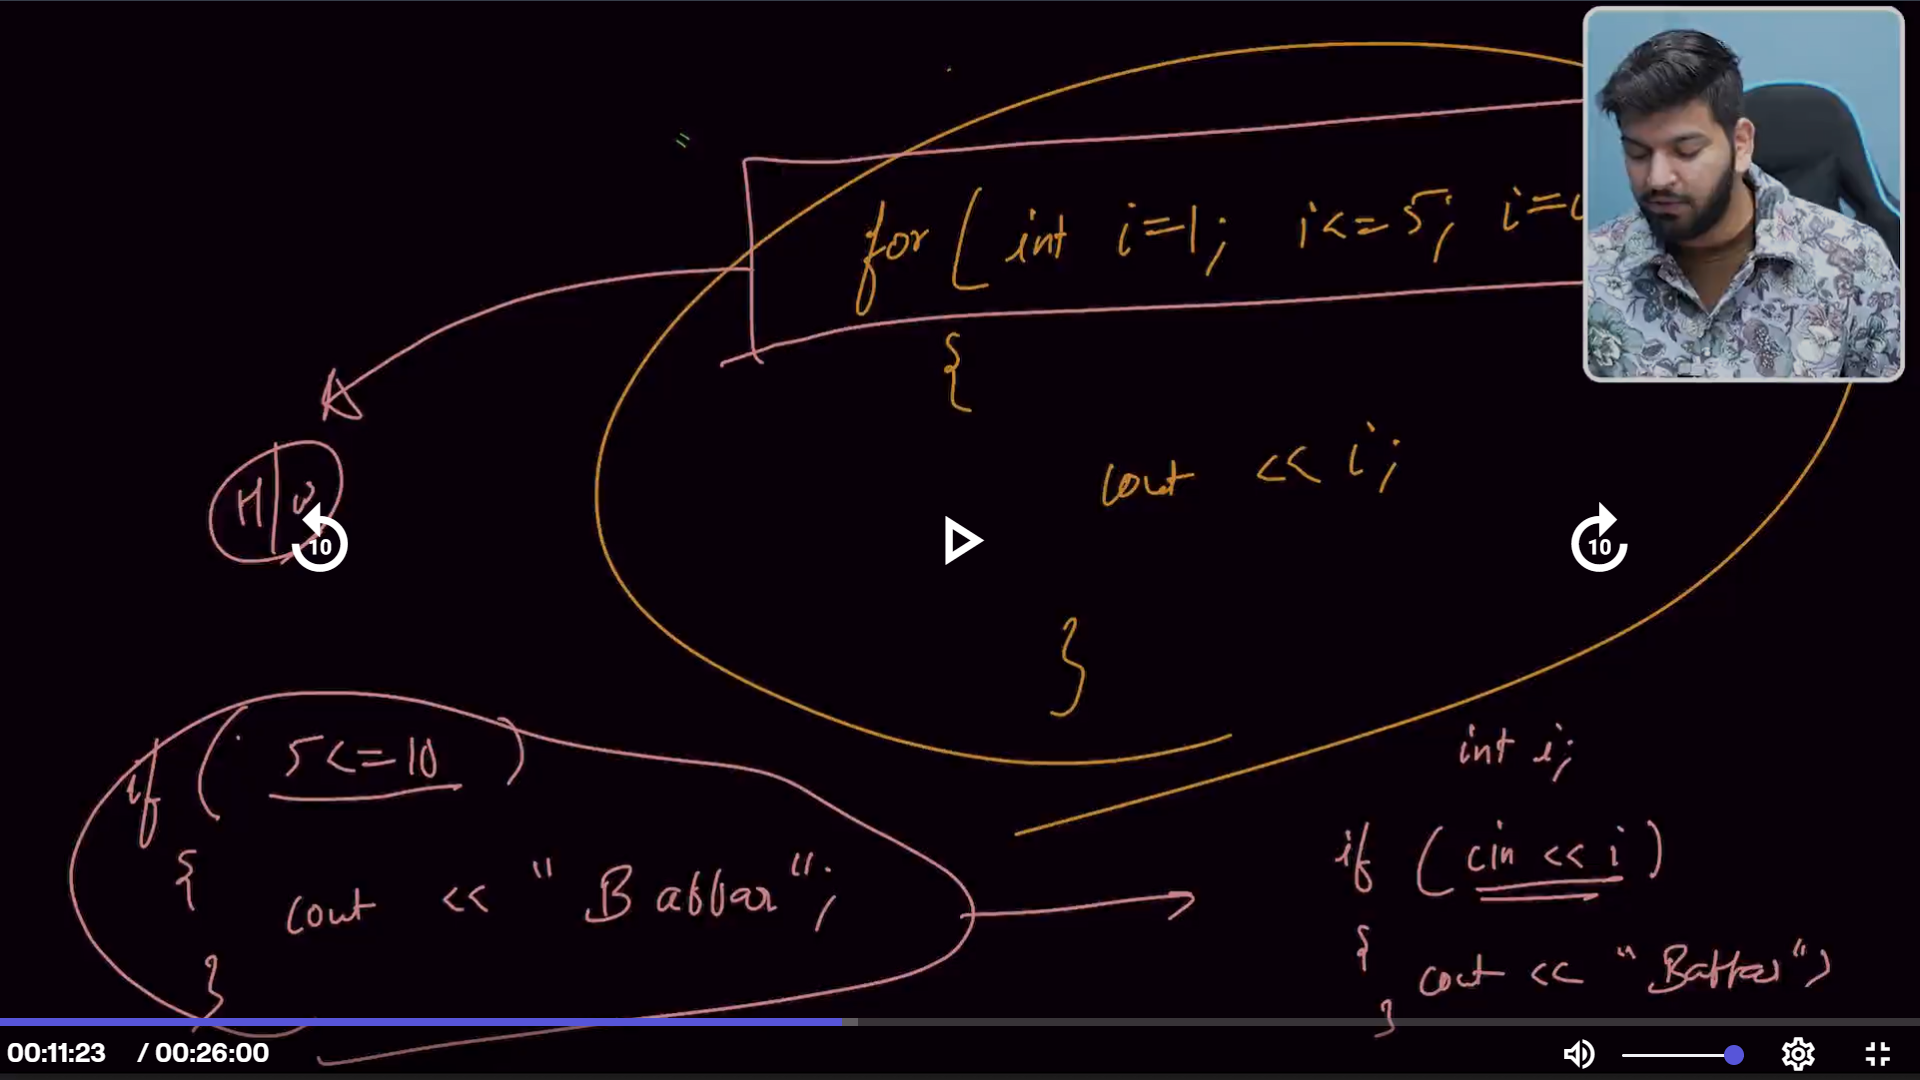 for ( int i=1; i<=5; i=
{
cout << i;
}
H|W
10
10
if ( 5<=10 )
{
cout << "Babbar";
}
int i;
if ( cin << i )
{
cout << "Babbar")
}
00:11:23 / 00:26:00